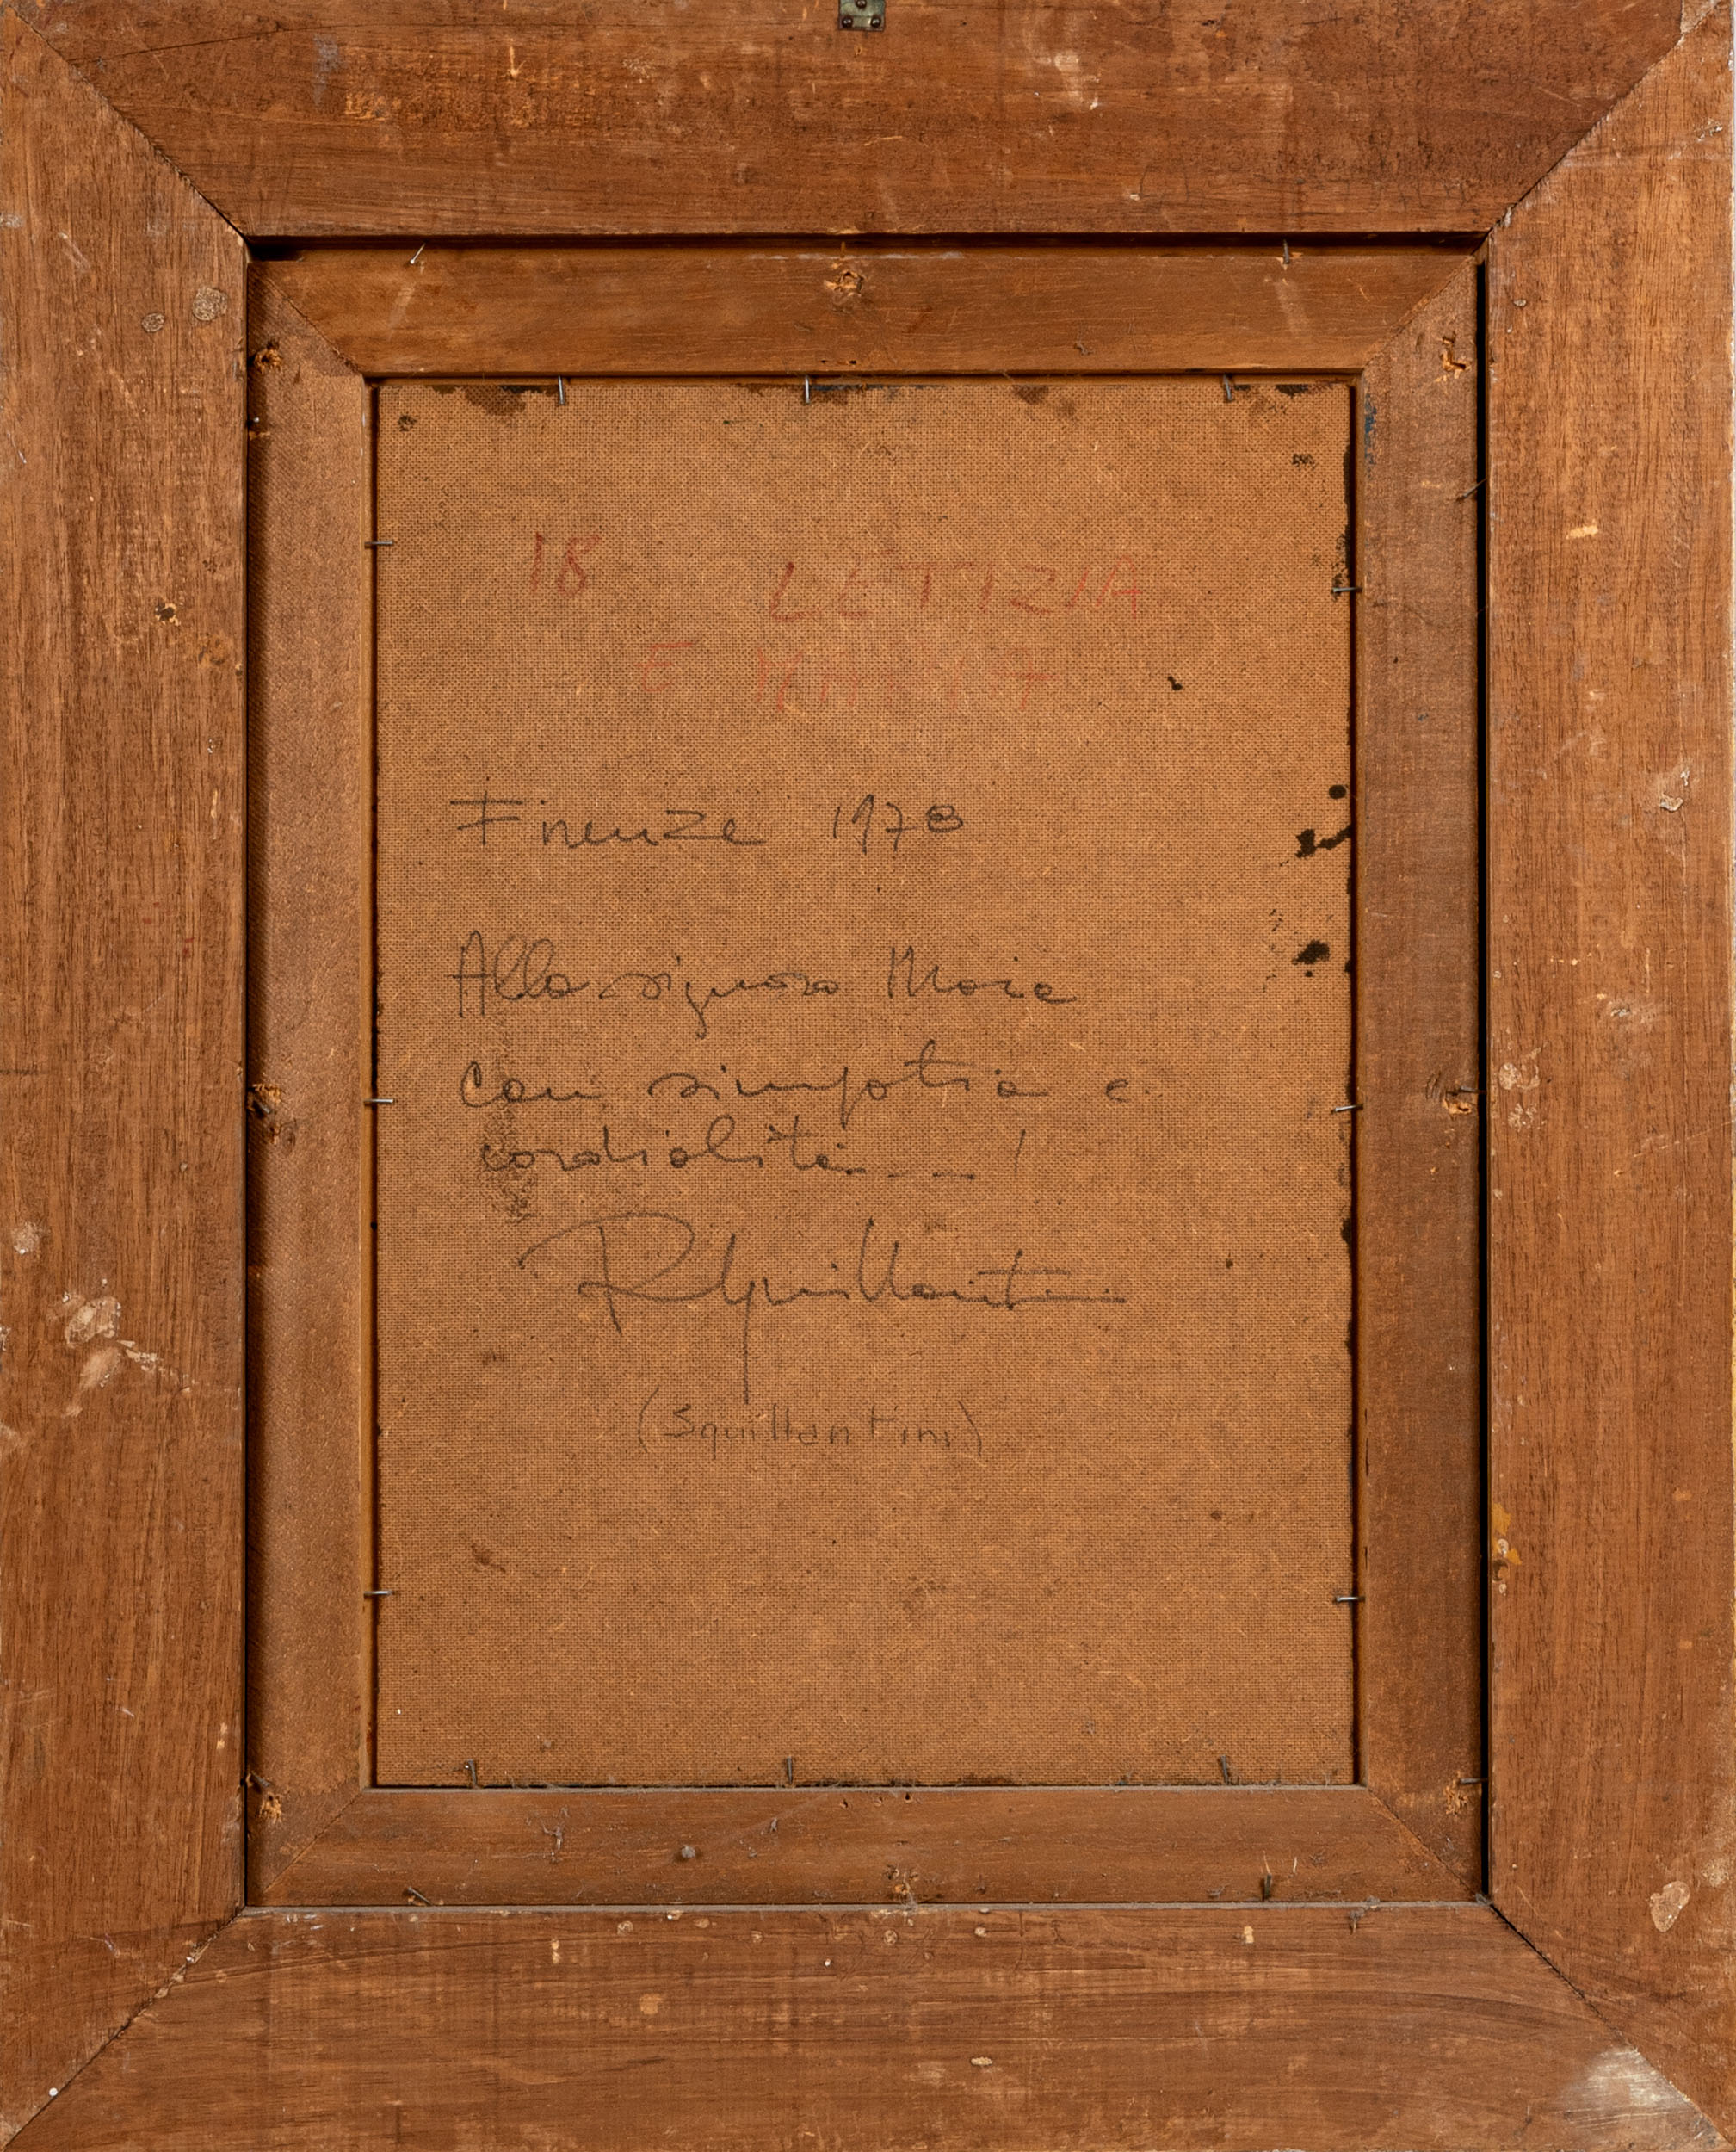 18 LETIZIA
E
Firenze 1978
Alla signora
con simpatia e
cordialità...!
RSquillantini
(Squillantini)